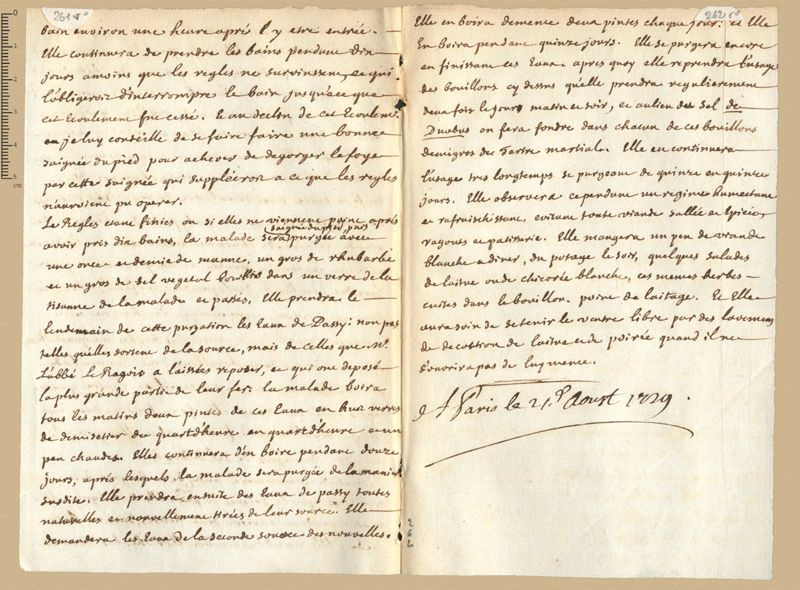 261 v°
bain environ une heure aprés l'y etre entrée.
Elle continuera de prendre les bains pendant dix
jours amoins que les regles ne survinssent, ce qui
l'obligeroit d'interrompre le bain jusqu'ace que
cet Ecoulement fut cessé. Et au declin de cet Ecoulemt.
je luy conseille de se faire faire une bonne
saignée du pied pour achever de degorger le foye
par cette saignée qui suppléeroit a ce que les regles
n'auroient pu operer.
Les Regles etant finies ou si elles ne viennent point aprés
avoir pris dix bains, la malade sera saignée du pied, puis purgée avec
une once et demie de manne, un gros de rhubarbe
et un gros de sel vegetal bouillis dans un verre de la
tisanne de la malade et passés, Elle prendra le
lendemain de cette purgation les Eaux de Passy: non pas
telles qu'elles sortent de la source, mais de celles que Mr.
L'abbé Le Ragois a laissées reposer, et qui ont deposé
la plus grande partie de leur fer. la malade boira
tous les matins deux pintes de ces Eaux en huit verres
de demisetier de quartd'heure en quartd'heure et un
peu chaudes. Elles continuera d'en boire pendant douze
jours, aprés lesquels la malade sera purgée de la maniere
susdite. Elle prendra ensuite des Eaux de passy toutes
naturelles et nouvellement tirées de leur source. Elle
demandera les Eaux de la seconde source des nouvelles.
262 r°
Elle en boira de meme deux pintes chaque jour: et Elle
En boira pendant quinze jours. Elle se purgera encore
en finissant ces Eaux. aprés quoy elle reprendra l'usage
des bouillons cy dessus qu'elle prendra regulierement
deux fois le jour matin et soir, et au lieu du sel de
Duobus on fera fondre dans chacun de ces bouillons
demigros de Tartre martial. Elle en continuera
l'usage tres longtemps se purgeant de quinze en quinze
jours. Elle observera cependant un regime humectant
et rafraichissant, evitant toute viande sallée et epicée,
ragouts et patisserie. Elle mangera un peu de viande
blanche a diner, du potage le soir, quelques salades
de laitue ou de chicorée blanche, ces memes herbes
cuites dans le bouillon. point de laitage. Et Elle
aura soin de se tenir le ventre libre par des lavemens
de decoction de laitue et de poirée quand il ne
s'ouvrira pas de luy meme.
A Paris le 21e Aoust 1729.
262
0
1
2
3
4
5
cm